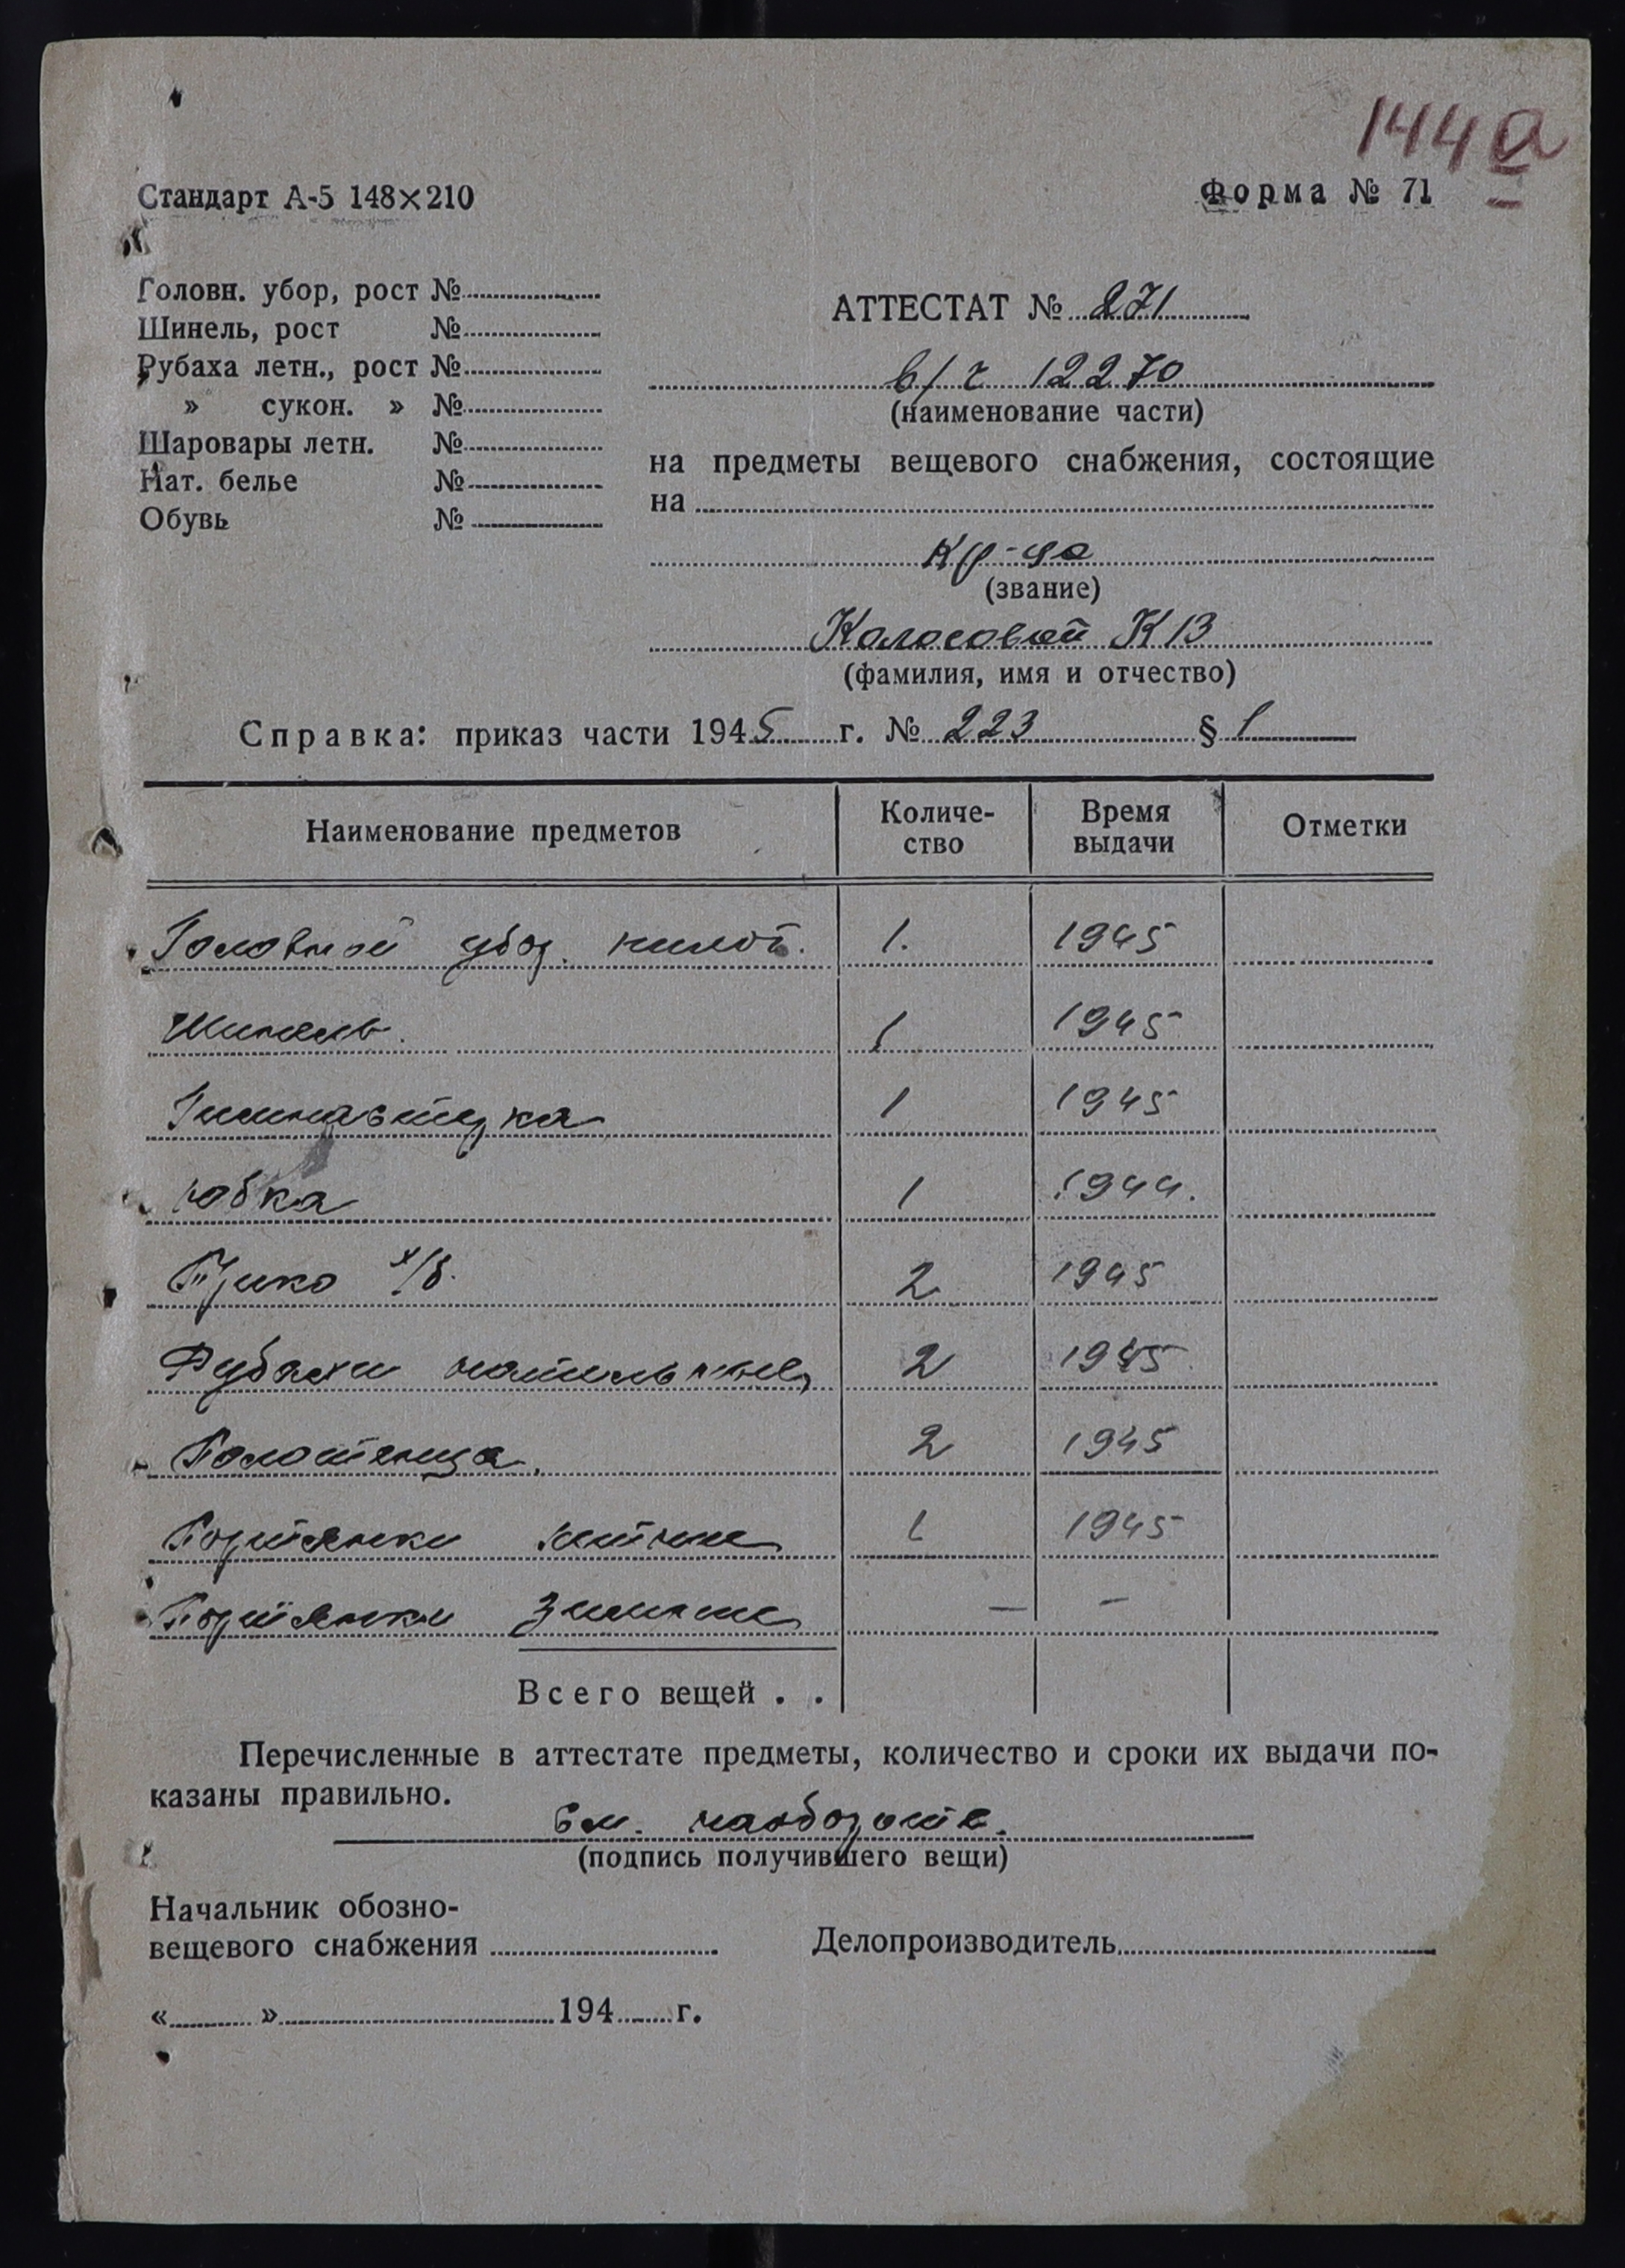 144а
Стандарт А-5 148×210
Форма № 71
Головн. убор, рост №
Шинель, рост №
Рубаха летн., рост №
» сукон. » №
Шаровары летн. №
Нат. белье №
Обувь №
АТТЕСТАТ № 271
в/ч 12270
(наименование части)
на предметы вещевого снабжения, состоящие
на
кр-ца
(звание)
Коласовой К В
(фамилия, имя и отчество)
Справка: приказ части 1945 г. № 223 § 1
Наименование предметов Количе- Время Отметки
ство выдачи
Головной убор пилот. 1. 1945
Шинель. 1 1945
Гимнастерка 1 1945
Юбка 1 1944.
Трико х/б. 2 1945
Рубахи нательные 2 1945
Полотенца. 2 1945
Портянки летние 1 1945
Портянки зимние — —
Всего вещей . .
Перечисленные в аттестате предметы, количество и сроки их выдачи по-
казаны правильно.
См. наоборот
(подпись получившего вещи)
Начальник обозно-
вещевого снабжения
Делопроизводитель
« » 194 г.